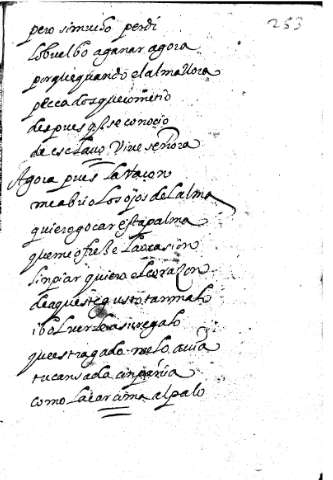 253
pero si mucho perdi
lo buelbo a ganar agora
porque quando el alma llora
peccados que cometio
despues q̃ se conocio
de esclavo vive señora
Agora pues la raçon
me abrio los ojos del alma
quiero goçar esta palma
que me ofreze la ocasion
linpiar quiero el coraçon
de aqueste gusto tan malo
i bolverle a su regalo
que estragado me lo avia
tu cansada
como la carcoma al palo